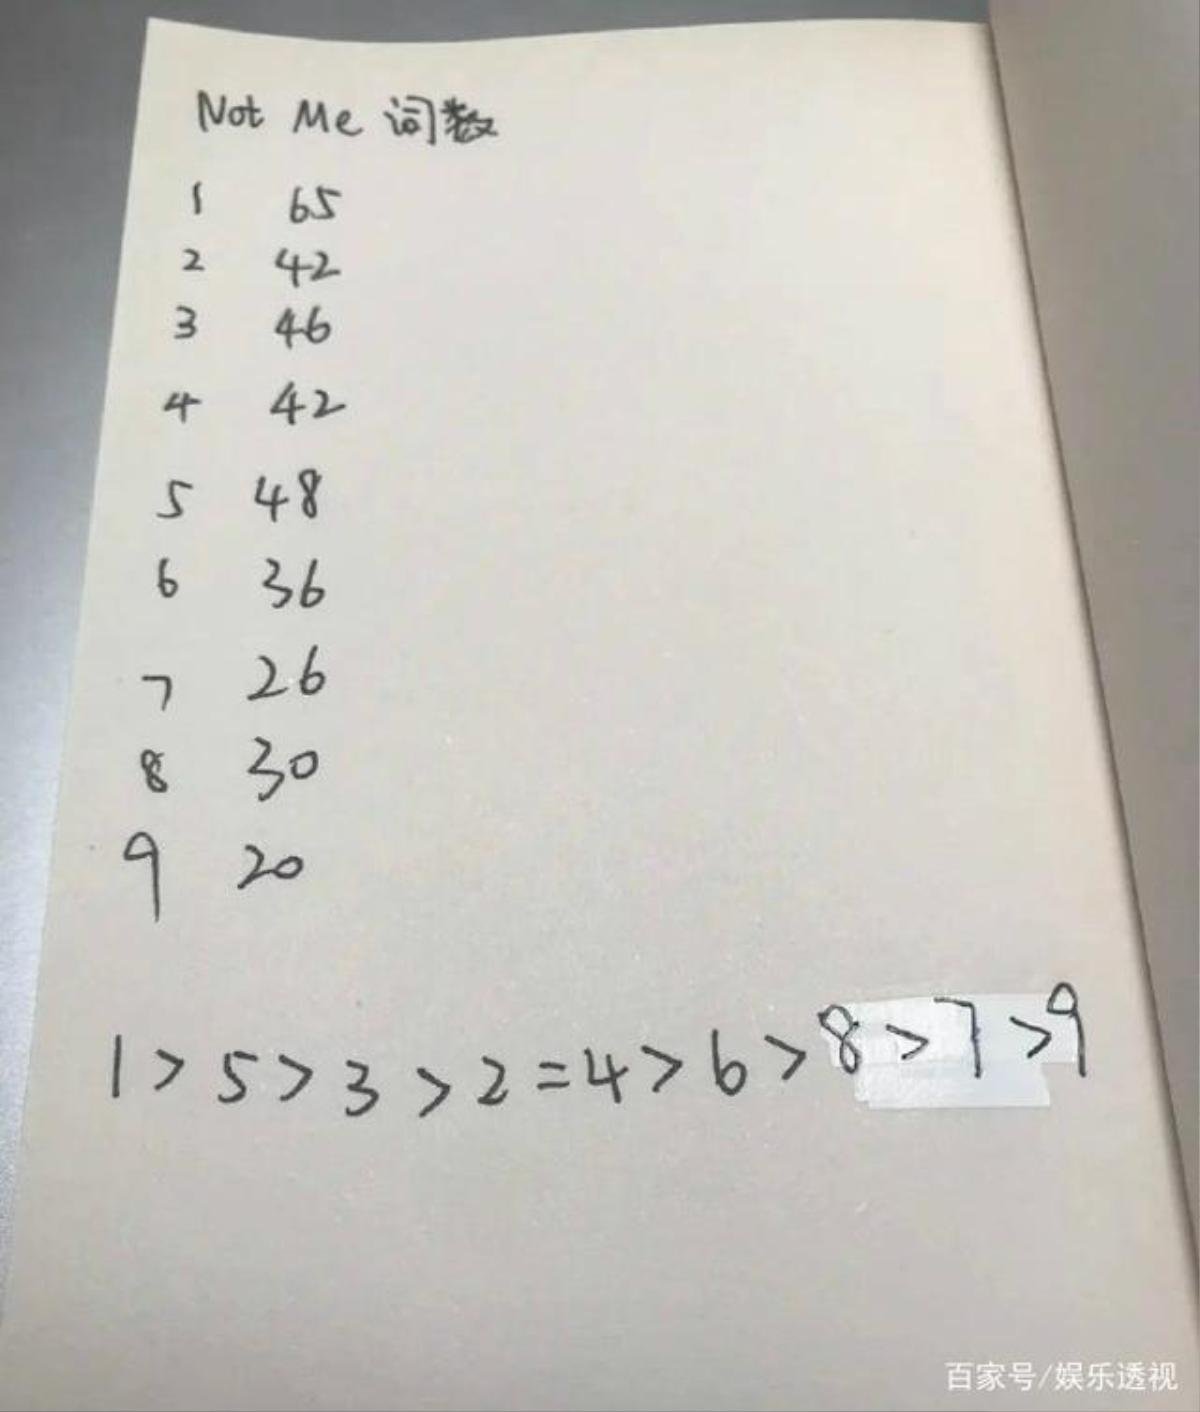 Not Me 词数
1 65
2 42
3 46
4 42
5 48
6 36
7 26
8 30
9 20
1>5>3>2=4>6>8>7>9
百家号/娱乐透视